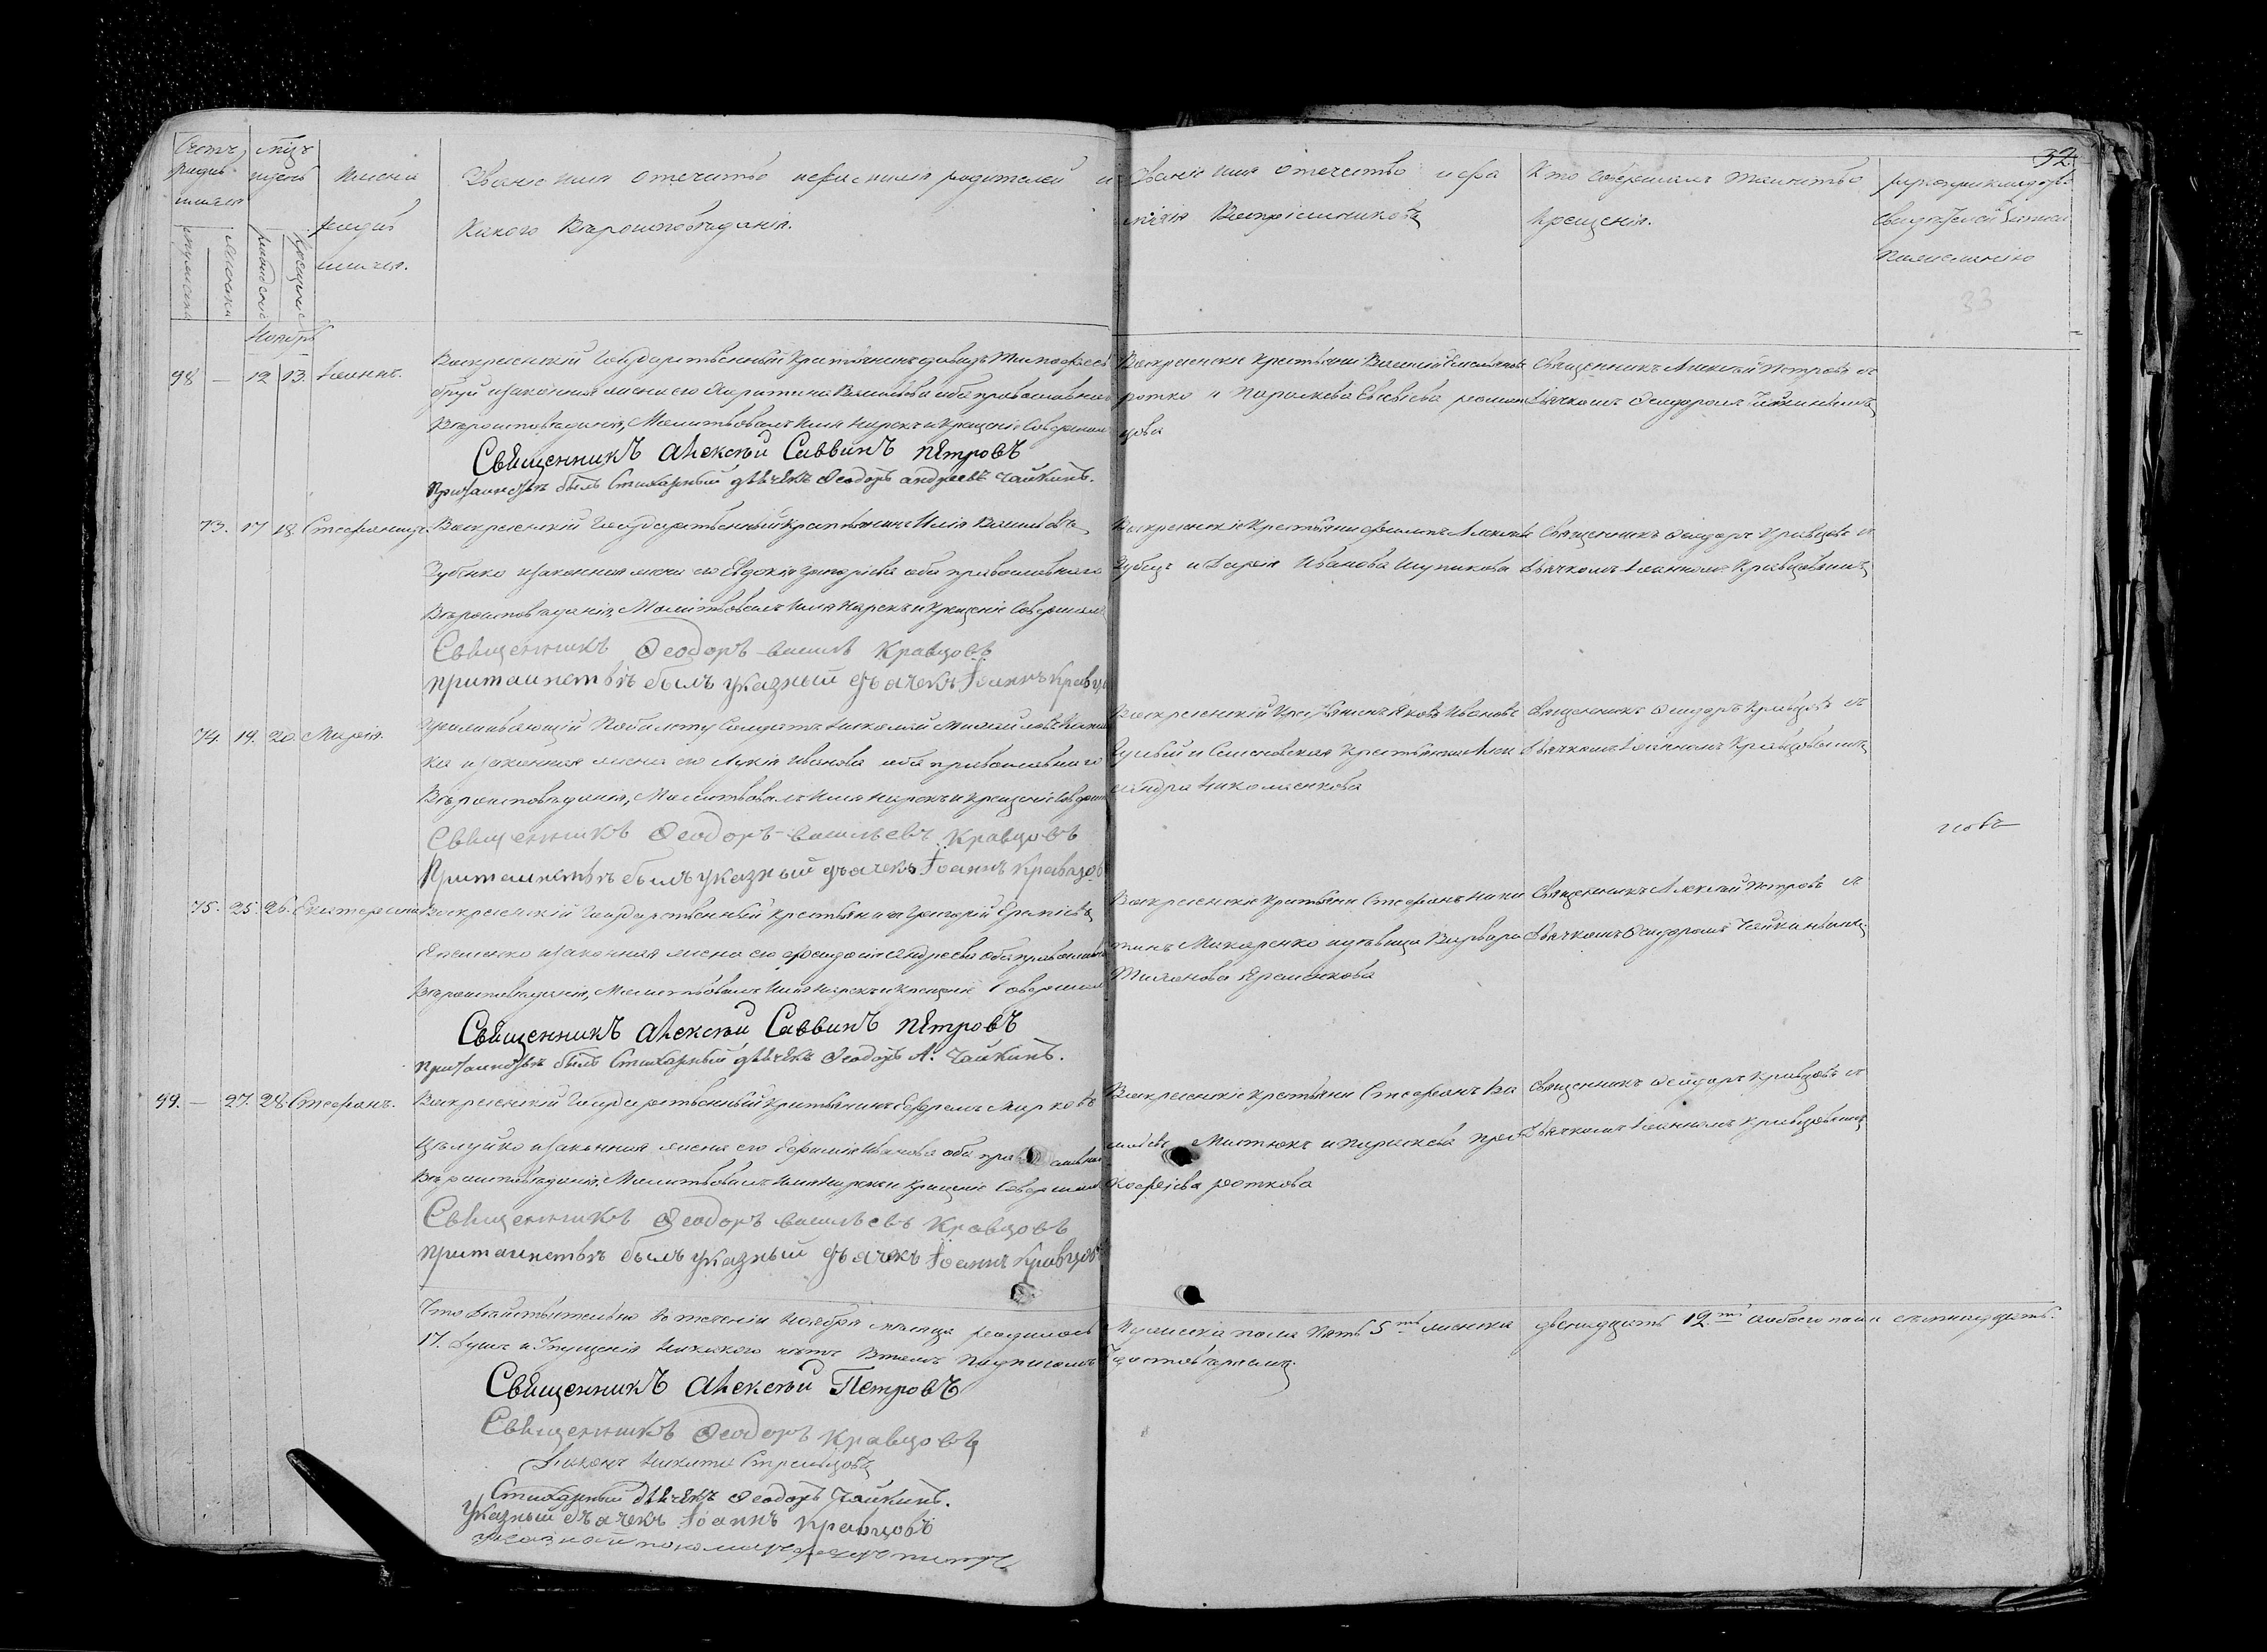 32.
Счетъ родив шихся
мужеска
женска
мѣц и день
рожденія
крещенія
Имена родив шихся.
Званіе имя отечество и фамилія родителей и
какого Вѣроисповѣданія.
Званіе имя отечество и фа
милія Воспріемниковъ
Кто совершалъ таинство
Крещенія.
рукоприкладст.
свидѣтелей записи
по желанію
33
Ноябрь
98 — 12 13. Іоаннъ.
Воскресенскій Государственный Крестьянинъ
законная жена его Акилина Васильева оба православнаго
Вѣроисповѣданія, Молитвовалъ Имя нарекъ и Крещеніе Совершалъ
Священникъ Алексѣй Саввинъ Петровъ
При таинствѣ былъ Стихарный дьячекъ Ѳеодоръ андреевъ Чайкинъ.
Воскресенскіе Крестьяни Василій Емельяновъ
ротко и Параскева Евсевіева роман
цова
Священникъ Алексѣй Петровъ съ
Дьячкомъ Ѳеодоромъ Чайкинымъ
73. 17 18. Стефанида.
Воскресенскій Государственный Крестьянинъ Илія Васильевъ
Зубенко и законная жена его Евдокія Григоріева оба православнаго
Вѣроисповѣданія, Молитвовалъ Имя Нарекъ и Крещеніе Совершалъ
Священникъ Ѳеодоръ василь Кравцовъ
при таинствѣ былъ указный дьячекъ Іоаннъ Кравцо
Воскресенскіе Крестьяни Филипъ Алексѣевъ
Зубецъ и Дарія Иванова Шупикова
Священникъ Ѳеодоръ Кравцовъ съ
Дьячкомъ Іоанномъ Кравцовымъ
74. 19. 20. Марія.
Проживающій По билету Солдатъ Николай Михайловъ
ка и законная жена его Лукія Иванова оба православнаго
Вѣроисповѣданія, Молитвовалъ Имя нарекъ и Крещеніе Совершалъ
Священникъ Ѳеодоръ васильевъ Кравцовъ
При таинствѣ былъ указный дьячекъ Іоаннъ Кравцовъ
Воскресенскій Крестьянинъ Яковъ Ивановъ
и Семеновская Крестьянка Алек
сандра Николаенкова
Священникъ Ѳеодоръ Кравцовъ съ
Дьячкомъ Іоанномъ Кравцовымъ
75. 25. 26. Екатерина
Воскресенскій Государственный Крестьянинъ Григорій Еремѣевъ
и законная жена его Ѳеодосія Андреева оба православнаго
Вѣроисповѣданія, Молитвовалъ Имя нарекъ и Крещеніе Совершалъ
Священникъ Алексѣй Саввинъ Петровъ
При таинствѣ былъ Стихарный дьячекъ Ѳеодоръ А. Чайкинъ.
Воскресенскіе Крестьяни Стефанъ Ники
тинъ Макаренко и дѣвица Варвара
Тихонова Яременкова
Священникъ Алексѣй Петровъ съ
Дьячкомъ Ѳеодоромъ Чайкинымъ.
99. — 27. 28. Стефанъ.
Воскресенскій Государственный Крестьянинъ Ефремъ Марковъ
Цѣлуйко и законная жена его Ефимія Иванова оба православнаго
Вѣроисповѣданія, Молитвовалъ Имя Нарекъ и Крещеніе Совершалъ
Священникъ Ѳеодоръ васильевъ Кравцовъ
при таинствѣ былъ указный дьячекъ Іоаннъ Кравцовъ
Воскресенскіе Крестьяни Стефанъ Ва
сильевъ Мастюкъ и Параскева Про
кофіева роткова
Священникъ Ѳеодоръ Кравцовъ съ
Дьячкомъ Іоанномъ Кравцовымъ
Что Дѣйствительно въ теченіи Ноября мѣсяца родилось Мужеска пола Пять 5ть женска двенадцать 12ть обоего пола семнадцать.
17. Душъ и Упущенія Никакого нѣтъ Въ томъ подписомъ Удостовѣряемъ.
Священникъ Алексѣй Петровъ
Священникъ Ѳеодоръ Кравцовъ
Діаконъ Никита Стрельцовъ
Стихарный дьячекъ Ѳеодоръ Чайкинъ.
Указный дьячекъ Іоаннъ Кравцовъ
указной пономарь